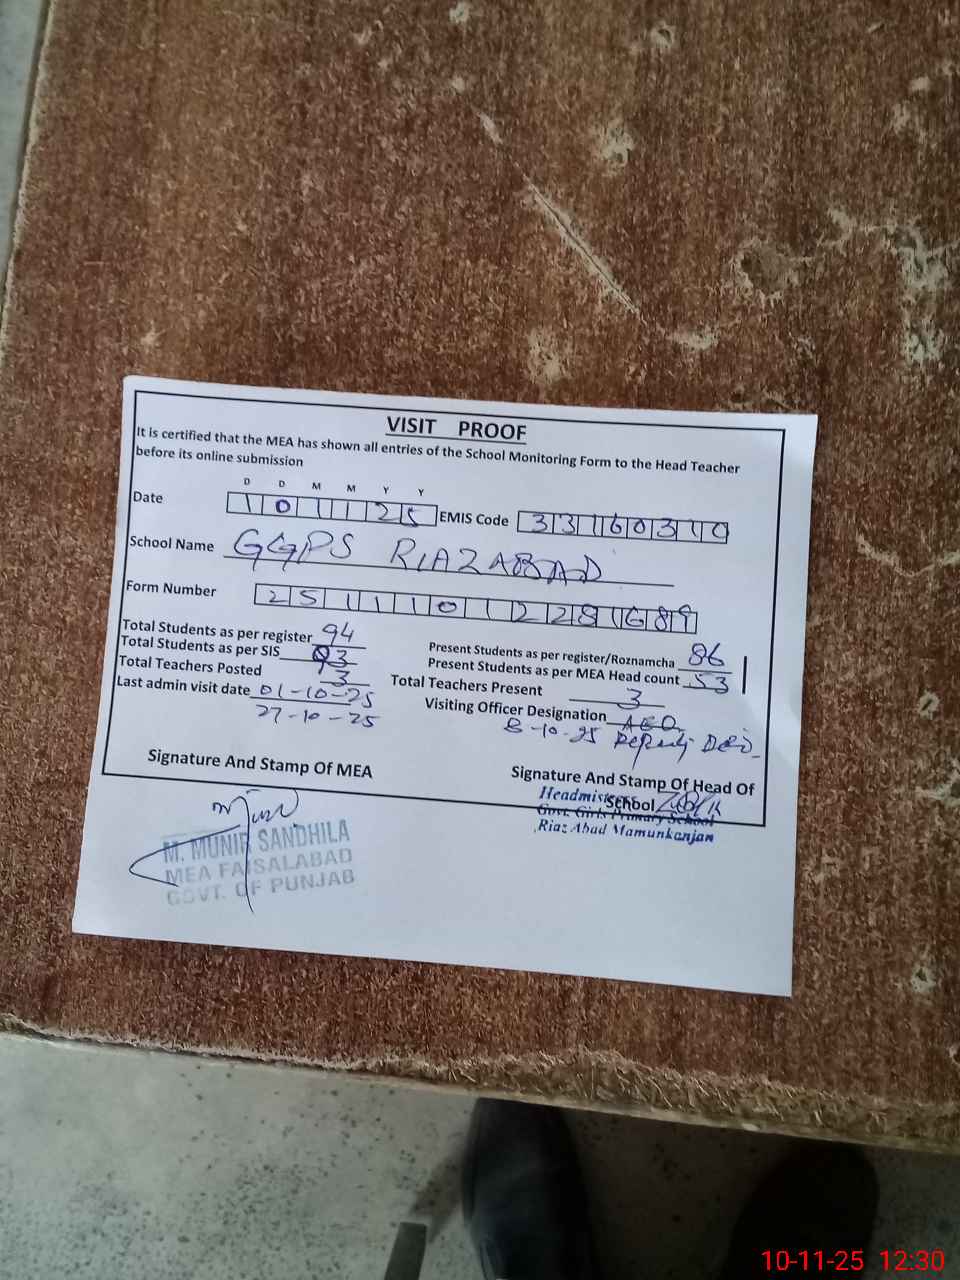 VISIT PROOF
It is certified that the MEA has shown all entries of the School Monitoring Form to the Head Teacher
before its online submission
D D M M Y Y
Date 1 0 1 1 2 5 EMIS Code 3 3 1 6 0 3 1 0
School Name GGPS RIAZABAD
Form Number 2 5 1 1 1 0 1 2 2 8 1 6 8 9
Total Students as per register 94 Present Students as per register/Roznamcha 86
Total Students as per SIS 93 Present Students as per MEA Head count 53
Total Teachers Posted 3 Total Teachers Present 3
Last admin visit date 01-10-25 Visiting Officer Designation AEO
27-10-25 8-10-25 Deputy DEO
Signature And Stamp Of MEA Signature And Stamp Of Head Of
School
Headmistress
Govt. Girls Primary School
Riaz Abad Mamunkanjan
M. MUNIR SANDHILA
MEA FAISALABAD
GOVT. OF PUNJAB
10-11-25 12:30